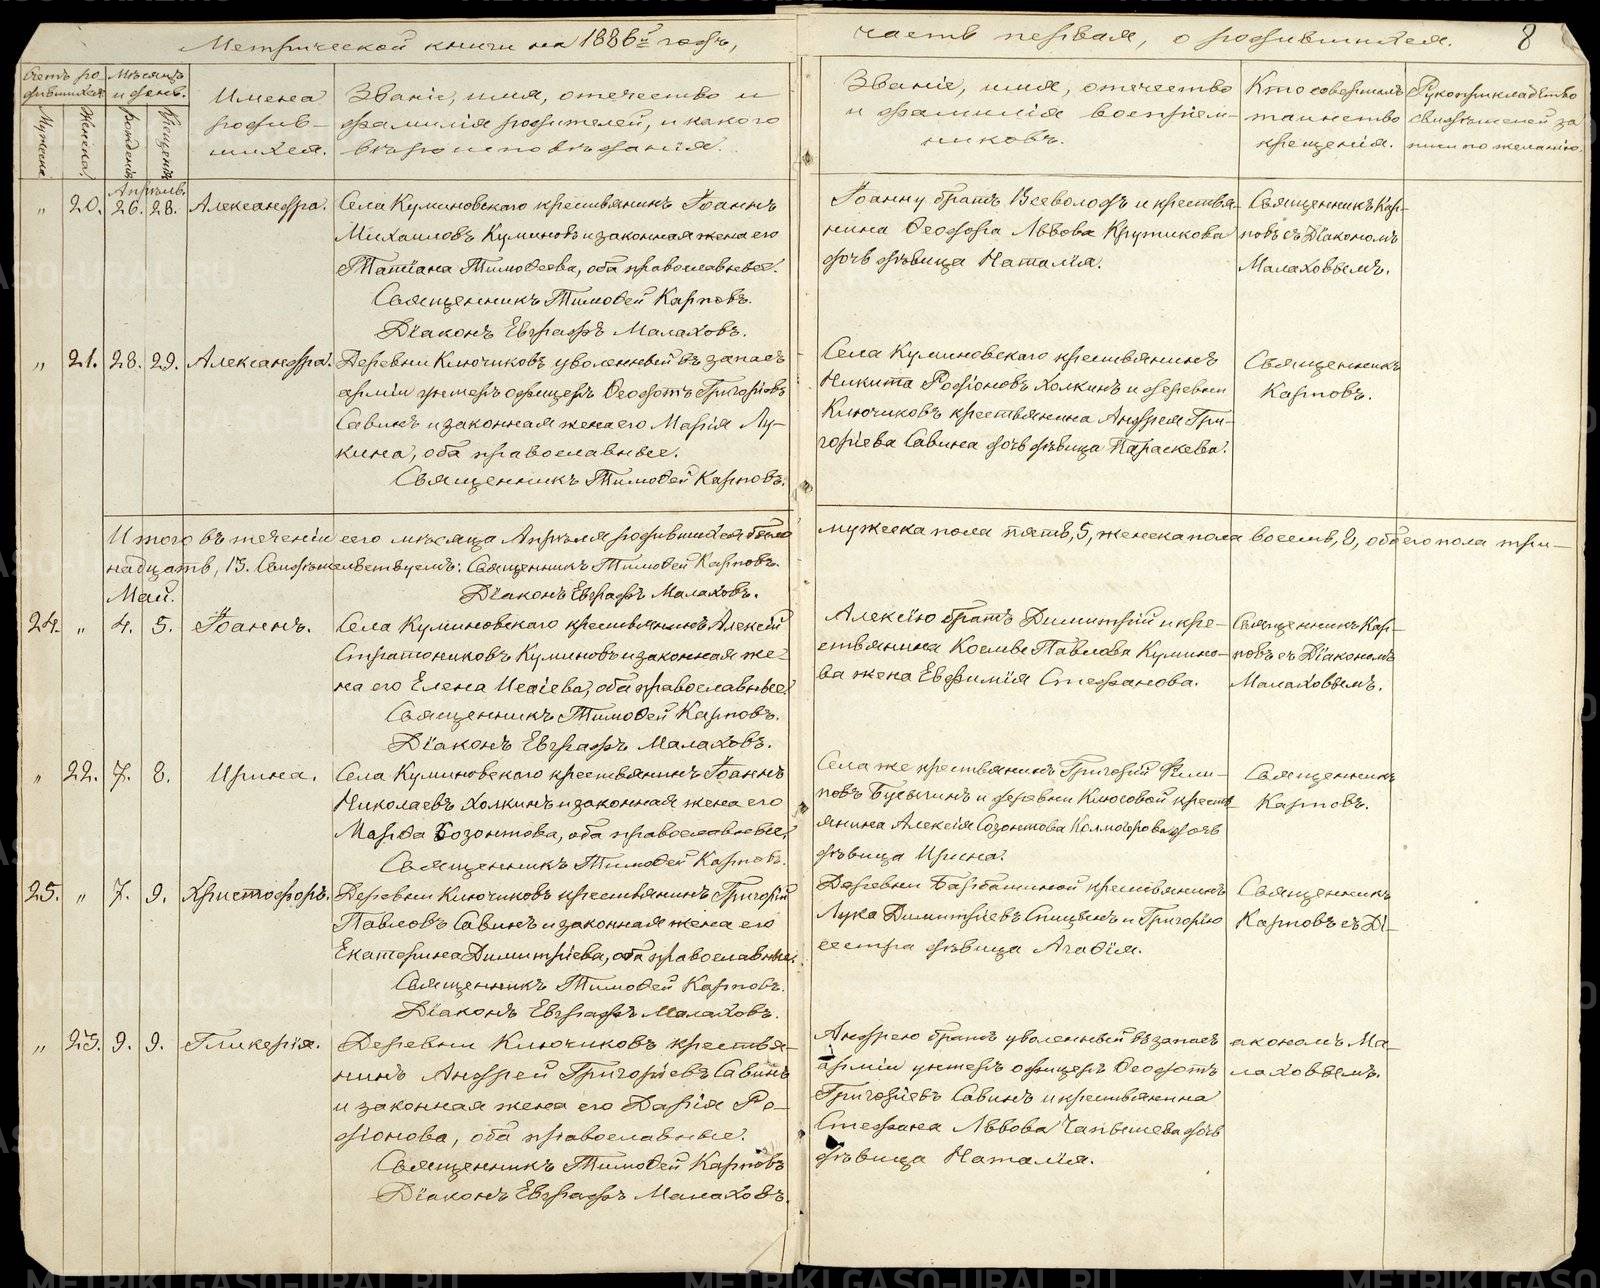 Метрической книги на 1886й годъ,
часть первая, о родившихся.
8
Счетъ ро-
дившихся
Мѣсяцъ
и день.
Мужеска
Женска
рожденія
крещенія
Имена
родив-
шихся.
Званіе, имя, отечество и
фамилія родителей, и какого
вѣроисповѣданія.
Званіе, имя, отечество
и фамилія воспріем-
никовъ.
Кто совершалъ
таинство
крещенія.
Рукоприкладство
свидѣтелей за
писи по желанію.
Апрѣль.
„ 20. 26. 28. Александра.
Села Куминовскаго крестьянинъ Іоаннъ
Михаиловъ Куминовъ и законная жена его
Татіана Тимоѳеева, оба православные.
Священникъ Тимоѳей Карповъ.
Діаконъ Евграфъ Малаховъ.
Іоанну братъ Всеволодъ и крестья-
нина Ѳеодора Львова Крутикова
дочь дѣвица Наталія.
Священникъ Кар-
повъ съ Діакономъ
Малаховымъ.
„ 21. 28. 29. Александра.
Деревни Ключиковъ уволенный въ запасъ
арміи унтеръ офицеръ Ѳеодотъ Григорьевъ
Савинъ и законная жена его Марія Лу-
кина, оба православные.
Священникъ Тимоѳей Карповъ.
Села Куминовскаго крестьянинъ
Никита Родіоновъ Холкинъ и деревни
Ключиковъ крестьянина Андрея Гри-
горіева Савина дочь дѣвица Параскева.
Священникъ
Карповъ.
Итого въ теченіи сего мѣсяца Апрѣля родившихся было
мужеска пола пять, 5, женска пола восемь, 8, обоего пола три-
надцать, 13. Свидѣтельствуемъ: Священникъ Тимоѳей Карповъ.
Діаконъ Евграфъ Малаховъ.
Май.
24. „ 4. 5. Іоаннъ.
Села Куминовскаго крестьянинъ Алексій
Стратониковъ Куминовъ и законная же-
на его Елена Исаіева, оба православные.
Священникъ Тимоѳей Карповъ.
Діаконъ Евграфъ Малаховъ.
Алексію братъ Димитрій и кре-
стьянина Космы Павлова Кумино-
ва жена Евфимія Стефанова.
Священникъ Кар-
повъ съ Діакономъ
Малаховымъ.
„ 22. 7. 8. Ирина.
Села Куминовскаго крестьянинъ Іоаннъ
Николаевъ Холкинъ и законная жена его
Марѳа Созонтова, оба православные.
Священникъ Тимоѳей Карповъ.
Села же крестьянинъ Григорій Фили-
повъ Бусыгинъ и деревни Клюсовой кресть-
янина Алексія Созонтова Колмогорова дочь
дѣвица Ирина.
Священникъ
Карповъ.
25. „ 7. 9. Христофоръ.
Деревни Ключиковъ крестьянинъ Григорій
Павловъ Савинъ и законная жена его
Екатерина Димитріева, оба православные.
Священникъ Тимоѳей Карповъ.
Діаконъ Евграфъ Малаховъ.
Деревни Барбашиной крестьянинъ
Лука Димитріевъ Спицынъ и Григорію
сестра дѣвица Агаѳія.
Священникъ
Карповъ съ Ді-
„ 23. 9. 9. Гликерія.
Деревни Ключиковъ крестья-
нинъ Андрей Григорьевъ Савинъ
и законная жена его Дарія Ро-
діонова, оба православные.
Священникъ Тимоѳей Карповъ
Діаконъ Евграфъ Малаховъ.
Андрею братъ уволенный въ запасъ
арміи унтеръ офицеръ Ѳеодотъ
Григорьевъ Савинъ и крестьянина
Стефана Львова Чапышева дочь
дѣвица Наталія.
акономъ Ма-
лаховымъ.
METRIKI.GASO-URAL.RU